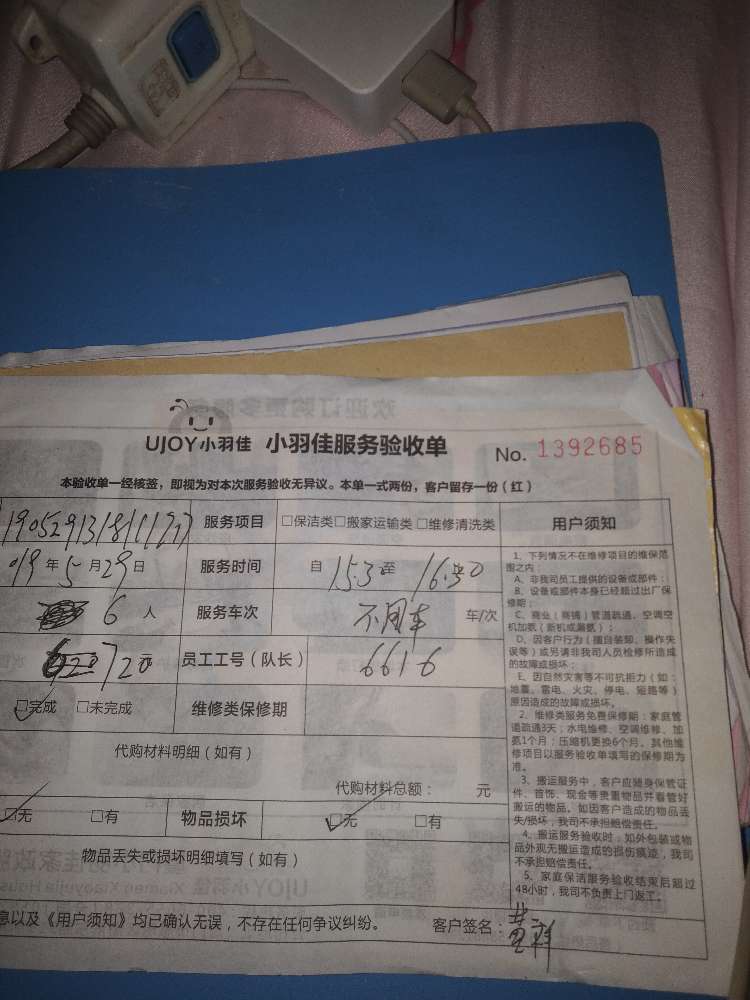 UJOY小羽佳 小羽佳服务验收单 No. 1392685
本验收单一经核签，即视为对本次服务验收无异议。本单一式两份，客户留存一份（红）
服务项目 □保洁类□搬家运输类□维修清洗类 用户须知
019年5月29日 服务时间 自 15:30 至 16:50
6 人 服务车次 不用车 车/次
720元 员工工号（队长） 6616
□完成 □未完成 维修类保修期
代购材料明细（如有）
代购材料总额： 元
□无 □有 物品损坏 □无 □有
物品丢失或损坏明细填写（如有）
息以及《用户须知》均已确认无误，不存在任何争议纠纷。 客户签名：
1、下列情况不在维修项目的维保范
围之内：
A、非我司员工提供的设备或部件；
B、设备或部件本身已经超过出厂保
修期；
C、商业（商铺）管道疏通、空调空
机加氨（新机或漏氨）；
D、因客户行为（擅自装卸、操作失
误等）或另请非我司人员检修所造成
的故障或损坏；
E、因自然灾害等不可抗拒力（如：
地震、雷电、火灾、停电、短路等）
原因造成的故障或损坏。
2、维修类服务免费保修期：家庭管
道疏通3天；水电维修、空调维修、加
氨1个月；压缩机更换6个月。其他维
修项目以服务验收单填写的保修期为
准。
3、搬运服务中，客户应随身保管证
件、首饰、现金等贵重物品并看管好
搬运的物品。如因客户造成的物品丢
失/损坏，我司不承担赔偿责任。
4、搬运服务验收时，如外包装或物
品外观无搬运造成的损伤痕迹，我司
不承担赔偿责任。
5、家庭保洁服务验收结束后超过
48小时，我司不负责上门返工。